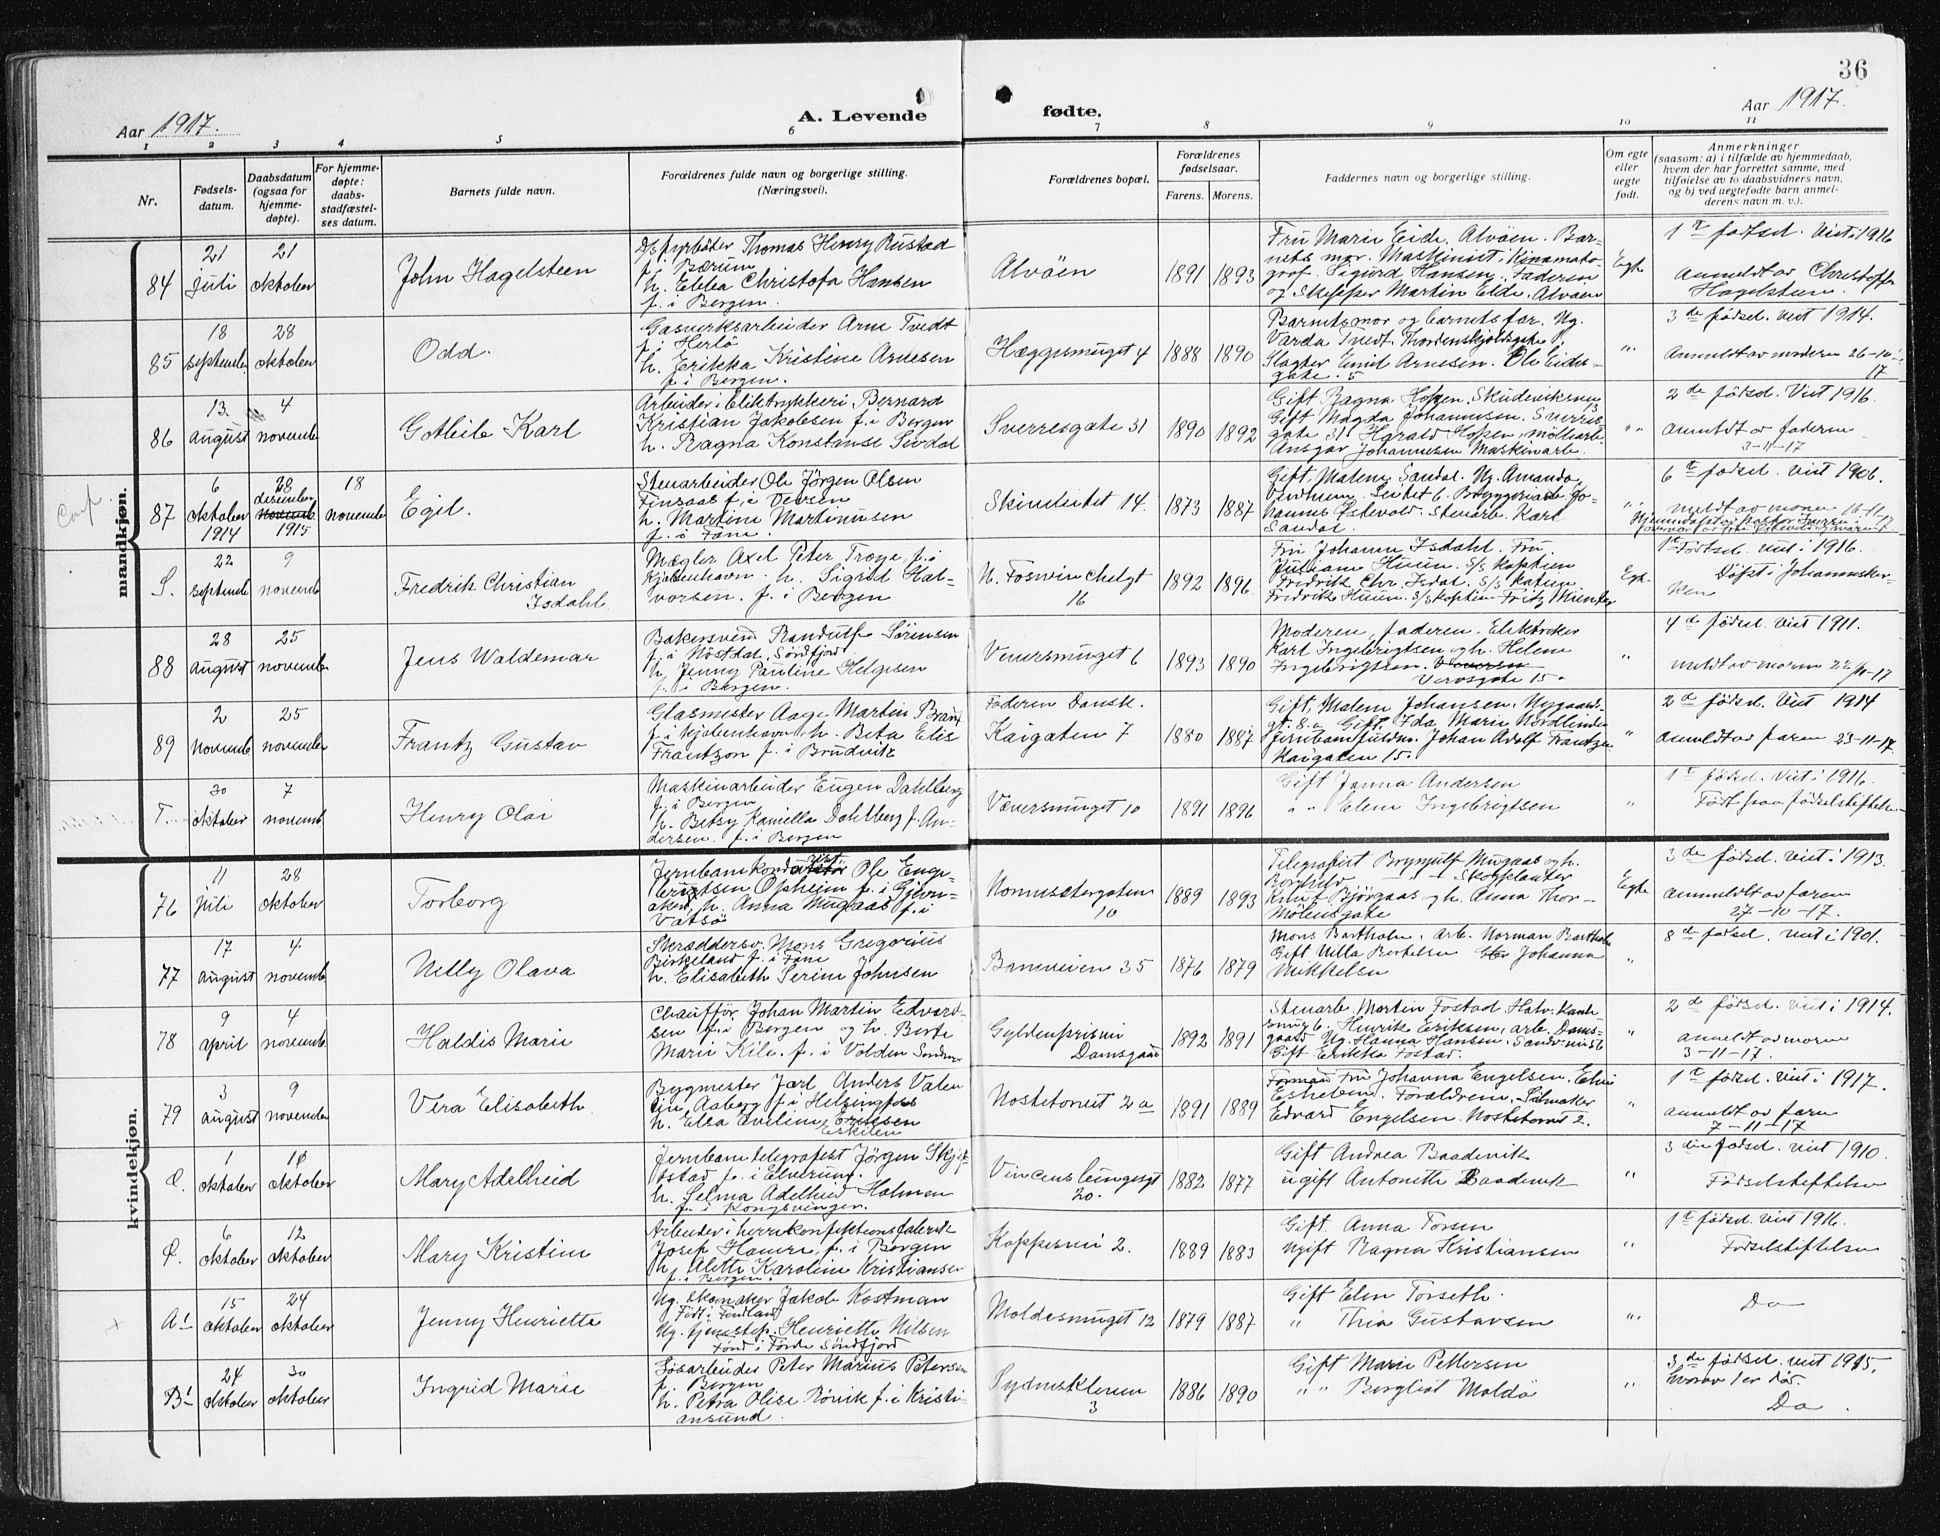 36
Aar 1917.
A. Levende
fødte.
Aar 1917.
1 2 3 4 5 6 7 8 9 10 11
Nr.
Fødsels-
datum.
Daabsdatum
(ogsaa for
hjemme-
døpte).
For hjemme-
døpte:
daabs-
stadfæstel-
ses datum.
Barnets fulde navn.
Forældrenes fulde navn og borgerlige stilling.
(Næringsvei).
Forældrenes bopæl.
Forældrenes
fødselsaar.
Farens. Morens.
Faddernes navn og borgerlig stilling.
Om egte
eller
uegte
født.
Anmerkninger
(saasom: a) i tilfælde av hjemmedaab,
hvem der har forrettet samme, med
tilføielse av to daabsvidners navn,
og b) ved uegtefødte barn anmel-
derens navn m. v.).
mandkjøn.
84
21 juli
21 oktober
John Hagelsteen
Thomas Henry Rustad
f. i Bærum
h. Ebba Christofa Hansen
f. i Bergen.
Alvøen
1891 1893
Fru Marie Eide. Alvøen. Bar-
nets mor. Maskinist i Kinamato-
graf. Sigurd Hansen. Faderen
og Skipper Martin Eide. Alvøen
Egte
1ste fødsel. Viet i 1916
Anmeldt av Christoffer
Hagelsteen.
85
18 september
28 oktober
Odd.
Gasverksarbeider Arne Tvedt
f. i Herlø
h. Erikka Kristine Arnesen
f. i Bergen.
Hæggesmuget 4
1888 1890
Barnets mor og barnets far. Ug.
Varda Tvedt. Thordenskjoldsgate
Slagter Emil Arnesen. Ole Eides-
gate. 5
"
3de fødsel. viet 1914.
Anmeldt av moderen 26-10-
17
86
13. august
4 november
Gotleib Karl
Arbeider i Eliktrykkeri, Bernard
Kristian Jakobsen f. i Bergen
h. Ragna Konstanse Sivdal
Sverresgate 31
1890 1892
Gift Ragna Hopen. Skudeviksvei
Gift Magda Johannesen. Sverres-
gate 31. Harald Hopen. Møllearb.
Ansgar Johannesen Maskinarb.
" "
2de fødsel. Viet 1916.
anmeldt av faderen
3-11-17
Conf.
87
6 oktober 1914
28 desember
novemb. 1915
18 november
Egil.
Stenarbeider Ole Jørgen Olsen
Finsaas f. i Vevren
h. Martine Martinusen
f. i Fane.
Skivebaket 14.
1873 1887
Gift. Malene Sandal. Ug. Amanda
Sandal.
"
6te fødsel. viet 1906.
meldt av moren 16-11
17
S.
22 septemb.
9 novemb.
Fredrik Christian
Isdahl
Mægler Axel Peter Troye f. i
Kjøbenhavn. h. Sigrid Hal-
vorsen. f. i Bergen
16
1892 1896
Fru Johanne Isdahl. Fru.
Fredrik Chr. Isdal. S/S kaptein
Egte
1ste Fødsel. viet i 1916.
Døpt i Johanneskir-
ken
88
28 august
25 november
Jens Waldemar
Bakersvend Randulf Sørensen
f. i Nøstdal, Søndfjord
h. Jenny Pauline Helgesen
f. i Bergen.
Veversmuget 6
1893 1890
Moderen, faderen. Elektriker
Karl Ingebrigtsen og h. Helene
Ingebrigtsen.
15.
"
4de fødsel. viet 1911.
meldt av moren 22/11-17
89
2 novemb.
25 november
Frantz Gustav
Glasmester Aage Martin Brant
f. i Kjøbenhavn h. Beta Elis
Frantzon f. i Brudvik
Faderen Dansk.
Kaigaten 7
1880 1887
Gift, Malene Johansen. Nygaards-
gt. 8a Gift. Ida Marie Nordlinder
Johan Adolf Frantzen
Kaigaten 15.
"
2de fødsel. Viet 1914
Anmeldt av faren 23-11-17.
T.
30 oktober
7 novemb.
Henry Olai
Maskinarbeider Eugen Dahlberg
f. i Bergen
h. Betsy Kamilla Dahlberg f. An-
dersen. f. i Bergen
Væversmuget 10
1891 1896
Gift Janna Andersen
" " Elene Ingebrigtsen
"
1ste fødsel. Viet i 1916.
Født paa fødselstiftelsen
kvindekjøn.
76
11 juli
28 oktober
Torborg
Ole Enge-
brigtsen Opheim f. i Gjerv-
aker, h. Anna Mugaas f. i
Vatsø
Nonnesætergaten
10
1889 1893
Telegrafist Brynjulf Mugaas og h.
Borghild
Knut Bjørgaas og h. Anna Thor-
Møhlensgate
Egte
3de fødsel. viet i 1913.
anmeldt av faren
27-10-17.
77
17 august
4 novemb.
Nelly Olava
Skræddersv. Mons Gregorius
Birkeland f. i Fane
h. Elisabeth Serine Johnsen
Baneveien 35
1876 1879
Mons Bartholm. arb. Norman Bartholm
Gift Villa Bertelsen Johanna
Mikkelsen
"
8de fødsel. viet i 1901.
78
9 april
4 novemb.
Haldis Marie
Chauffør Johan Martin Edvard-
sen f. i Bergen og h. Berte
Marie Kile. f. i Volden Søndmør
Gyldenprisvei
Damsgaard
1892 1891
Stenarb. Martin Fostad
Henrik Eriksen. arb. Dams-
gaard Ug. Hanna Hansen.
Gift Erikka Fostad.
"
2de fødsel. viet i 1914.
anmeldt av moren
3-11-17.
79
3 august
9 november
Vera Elisabeth
Bygmester Jarl Anders Valen
tin, Aaberg f. i Helsingfors
h. Elsa Eveline Eriksen
Eskelen
Nøstetorvet 2a
1891 1889
Fru Johanna Engelsen. Elsie
Eskelen. Forældrene. Seilmaker
Edvard Engelsen Nøstetorvet 2.
"
1ste fødsel. viet i 1917.
anmeldt av faren
7-11-17
1 oktober
10 oktober
Mary Adelheid
Jernbanetelegrafist Jørgen Skjef-
stad f. i Elverum.
h. Selma Adelheid Holmen
f. i Kongsvinger.
Vincens lungesgt
20.
1882 1877
Gift Andrea Baadevik
ugift Antonette Baadevik
"
3die fødsel. viet 1910.
Fødselstiftelse
6 oktober
12 oktober
Mary Kristine
Arbeider i herrekonfektionsfabrik
Josef Hamre. f. i Bergen
h. Alette Karoline Kristiansen
f. i Bergen.
Koppersvei 2.
1889 1883
Gift. Anna Torsen
Ugift Ragna Kristiansen
"
1te fødsel. viet 1916.
Fødselstiftelsen
A!
15 oktober
24 oktober
Jenny Henriette
Ug. Skomaker Jakob Kostman
Født i Findland
Ug. tjenestep. Henriette Nilsen
Født i Førde Søndfjord
Moldesmuget 12
1879 1887
Gift Elen Torseth.
" Thea Gustavsen
"
Do
B!
24 oktober
30 oktober
Ingrid Marie
Løsarbeider Peter Marius Petersen
f. Bergen
h. Petra Olise Rørvik f. i Kristi-
ansund.
Sydneskleven
3
1886 1890
Gift Marie Pettersen
" " Bergliot Moldø
"
3de fødsel. viet 1915.
hvorav 1 er død.
Do.